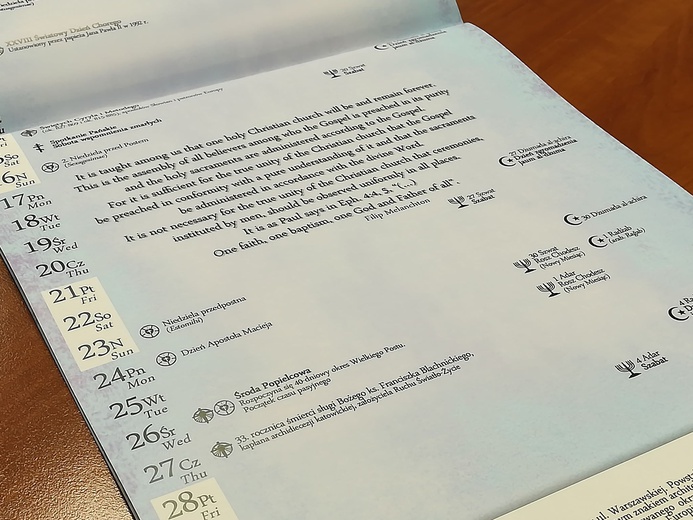 XXVIII Światowy Dzień Chorego
Ustanowiony przez papieża Jana Pawła II w 1992 r.
20 Szwat
Szabat
Spotkanie Pańskie
2. Niedziela przed Postem
(Sexagesimae)
It is taught among us that one holy Christian church will be and remain forever.
This is the assembly of all believers among who the Gospel is preached in its purity
and the holy sacraments are administered according to the Gospel.
For it is sufficient for the true unity of the Christian church that the Gospel
be preached in conformity with a pure understanding of it and that the sacraments
be administered in accordance with the divine Word.
It is not necessary for the true unity of the Christian church that ceremonies,
instituted by men, should be observed uniformly in all places.
It is as Paul says in Eph. 4:4, 5, "(...)
One faith, one baptism, one God and Father of all".
Filip Melanchton
27 Dżumada al-achira
Dzień zgromadzenia
27 Szwat
Szabat
30 Dżumada al-achira
1 Radżab
(arab. Rajab)
30 Szwat
Rosz Chodesz
(Nowy Miesiąc)
1 Adar
Rosz Chodesz
(Nowy Miesiąc)
4 Adar
Szabat
So
16 N
Sun
17 Pn
Mon
18 Wt
Tue
19 Śr
Wed
20 Cz
Thu
21 Pt
Fri
22 So
Sat
23 N
Sun
Niedziela przedpostna
(Estomihi)
24 Pn
Mon
Dzień Apostoła Macieja
25 Wt
Tue
26 Śr
Wed
Środa Popielcowa
Rozpoczyna się 40 dniowy okres Wielkiego Postu.
Początek czasu pasyjnego
27 Cz
Thu
33. rocznica śmierci sługi Bożego ks. Franciszka Blachnickiego,
kapłana archidiecezji katowickiej, założyciela Ruchu Światło-Życie
28 Pt
Fri
ul. Warszawskiej, Powst